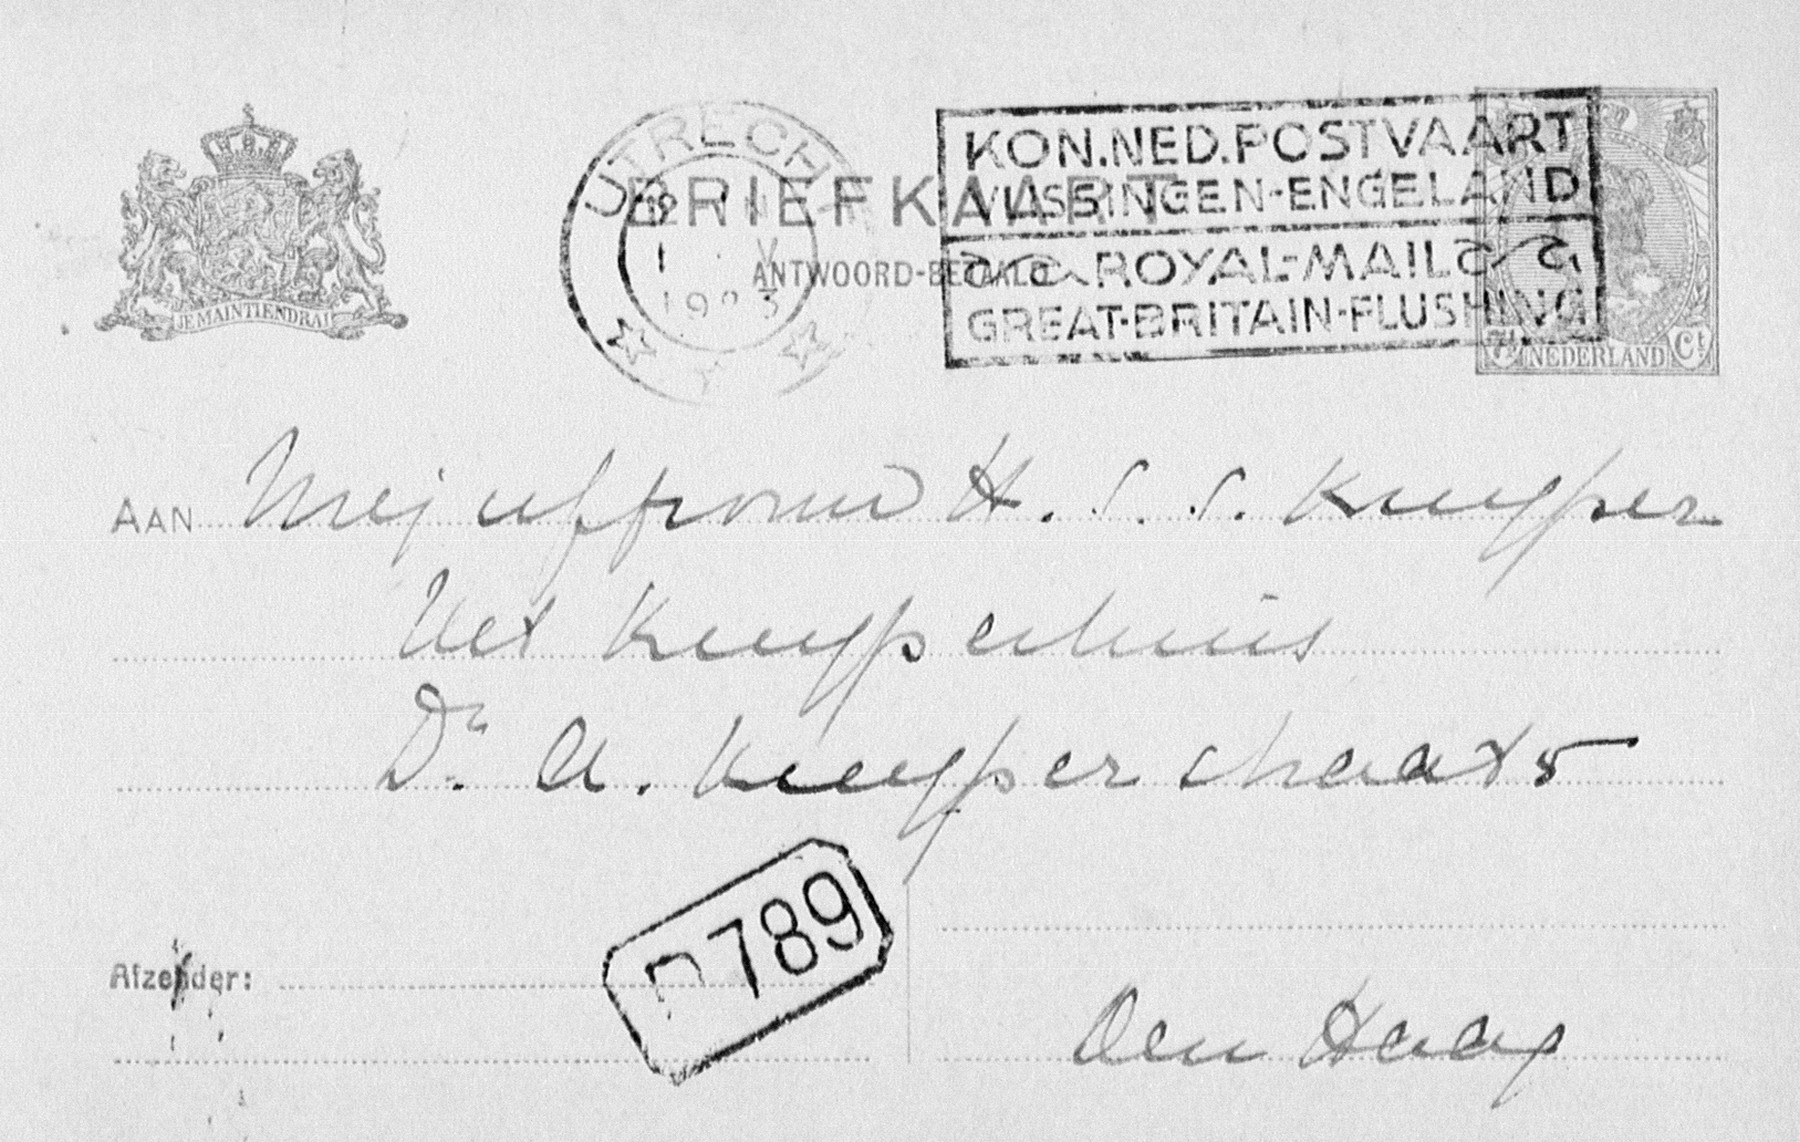 JE MAINTIENDRAI
UTRECHT
1 V
BRIEFKAART
ANTWOORD-BETAALD
KON.NED.POSTVAART
VLISSINGEN-ENGELAND
ROYAL-MAIL
GREAT-BRITAIN-FLUSHING
7½ NEDERLAND Ct
AAN Mejuffrouw H. S. S. Kuyper
Het Kuyperhuis
Dr. A. Kuyperstraat 5
Afzender:
789
Den Haag